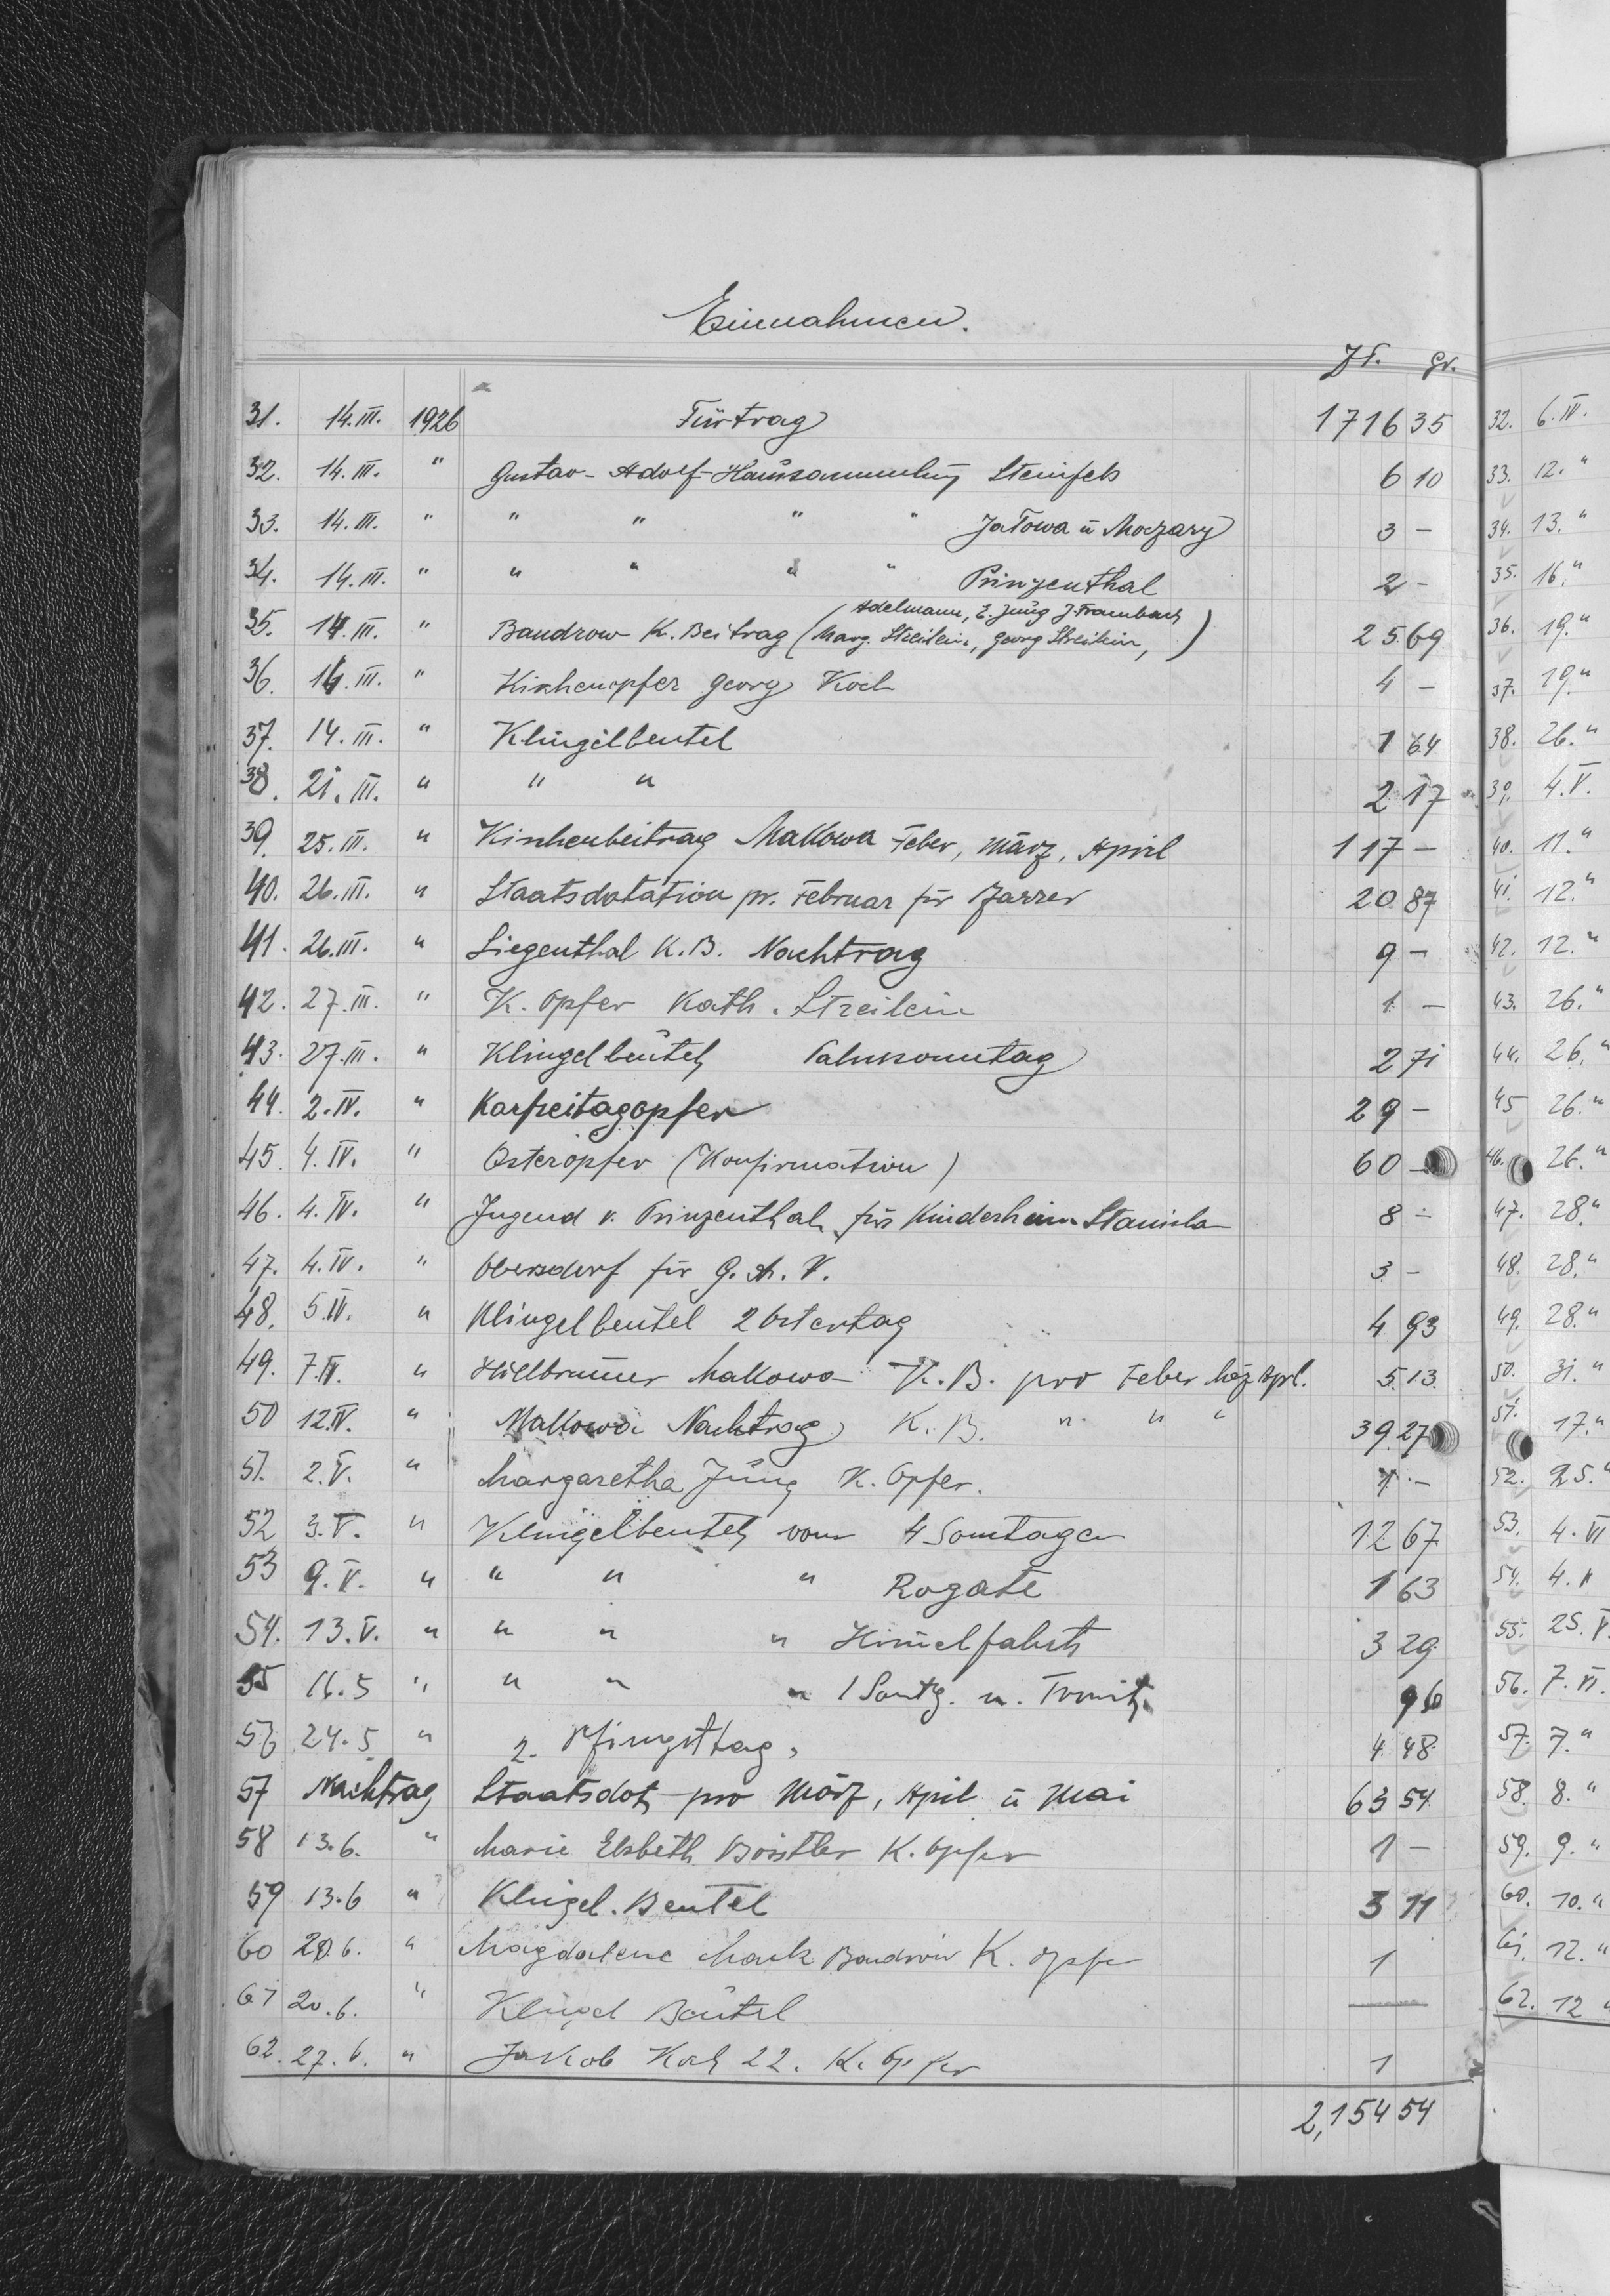 Einnahmen.
Zł. gr.
31. 14.III. 1926 Fürtrag 1716 35
32. 14.III. " Gustav-Adolf-Haussammlung Steinfels 6 10
33. 14.III. " " " " " Jałowa u Moczary 3 -
34. 14.III. " " " " " Prinzenthal 2 -
Adelmann, E. Jung J. Frambach
35. 14.III. " Bandrow K. Beitrag (Marg. Streilein, Georg Streilein,) 25 69
36. 14.III. " Kirchenopfer Georg Koch 4 -
37. 14.III. " Klingelbeutel 1 64
38. 21.III. " " " 2 17
39. 25.III. " Kirchenbeitrag Makowa Feber, März, April 117 -
40. 26.III. " Staatsdotation pr. Februar für Pfarrer 20 87
41. 26.III. " Siegenthal K.B. Nachtrag 9 -
42. 27.III. " K. Opfer Kath. Streilein 1 -
43. 27.III. " Klingelbeutel Palmsonntag 2 71
44. 2.IV. " Karfreitagopfer 29 -
45. 4.IV. " Osteropfer (Konfirmation) 60 -
46. 4.IV. " Jugend v. Prinzenthal für Kinderheim Stanisla 8 -
47. 4.IV. " Obersdorf für G.A.V. 3 -
48. 5.IV. " Klingelbeutel 2 Ostertag 4 93
49. 7.IV. " Makowa K.B. pro Feber Mäz Apl. 5 13
50 12.IV. " Makowa Nachtrag K.B. " " " 39 27
51. 2.V. " Margaretha Jung K. Opfer. 1 -
52 3.V. " Klingelbeutel vom 4 Sontagen 12 67
53 9.V. " " " " Rogate 1 63
54. 13.V. " " " " Himelfahrt 3 29
55 16.5 " " " " 1 Sontg. n. Trinit. 96
56 24.5 " 2. Pfingsttag, 4 48
57 Nachtrag Staatsdot. pro März, April u Mai 63 54
58 13.6. " Marie Elsbeth K. Opfer 1 -
59 13.6 " Klingel.Beutel 3 11
60 20.6. " Magdalene Bandrow K. Opfer 1
61 20.6. " Klingel Beutel —
62. 27.6. " Jakob Koch 22. K. Opfer 1
2,154 54
32. 6.IV.
33. 12. "
34. 13. "
35. 16. "
36. 19. "
37. 19. "
38. 26. "
39. 4.V.
40. 11. "
41. 12. "
42. 12. "
43. 26. "
44. 26. "
45 26. "
46. 26. "
47. 28. "
48. 28. "
49. 28. "
50. 31. "
51. 17. "
52. 25. "
53. 4.VI
54. 4. "
55. 25. V.
56. 7.VI.
57. 7. "
58. 8. "
59. 9. "
60. 10. "
61. 12. "
62. 12 "